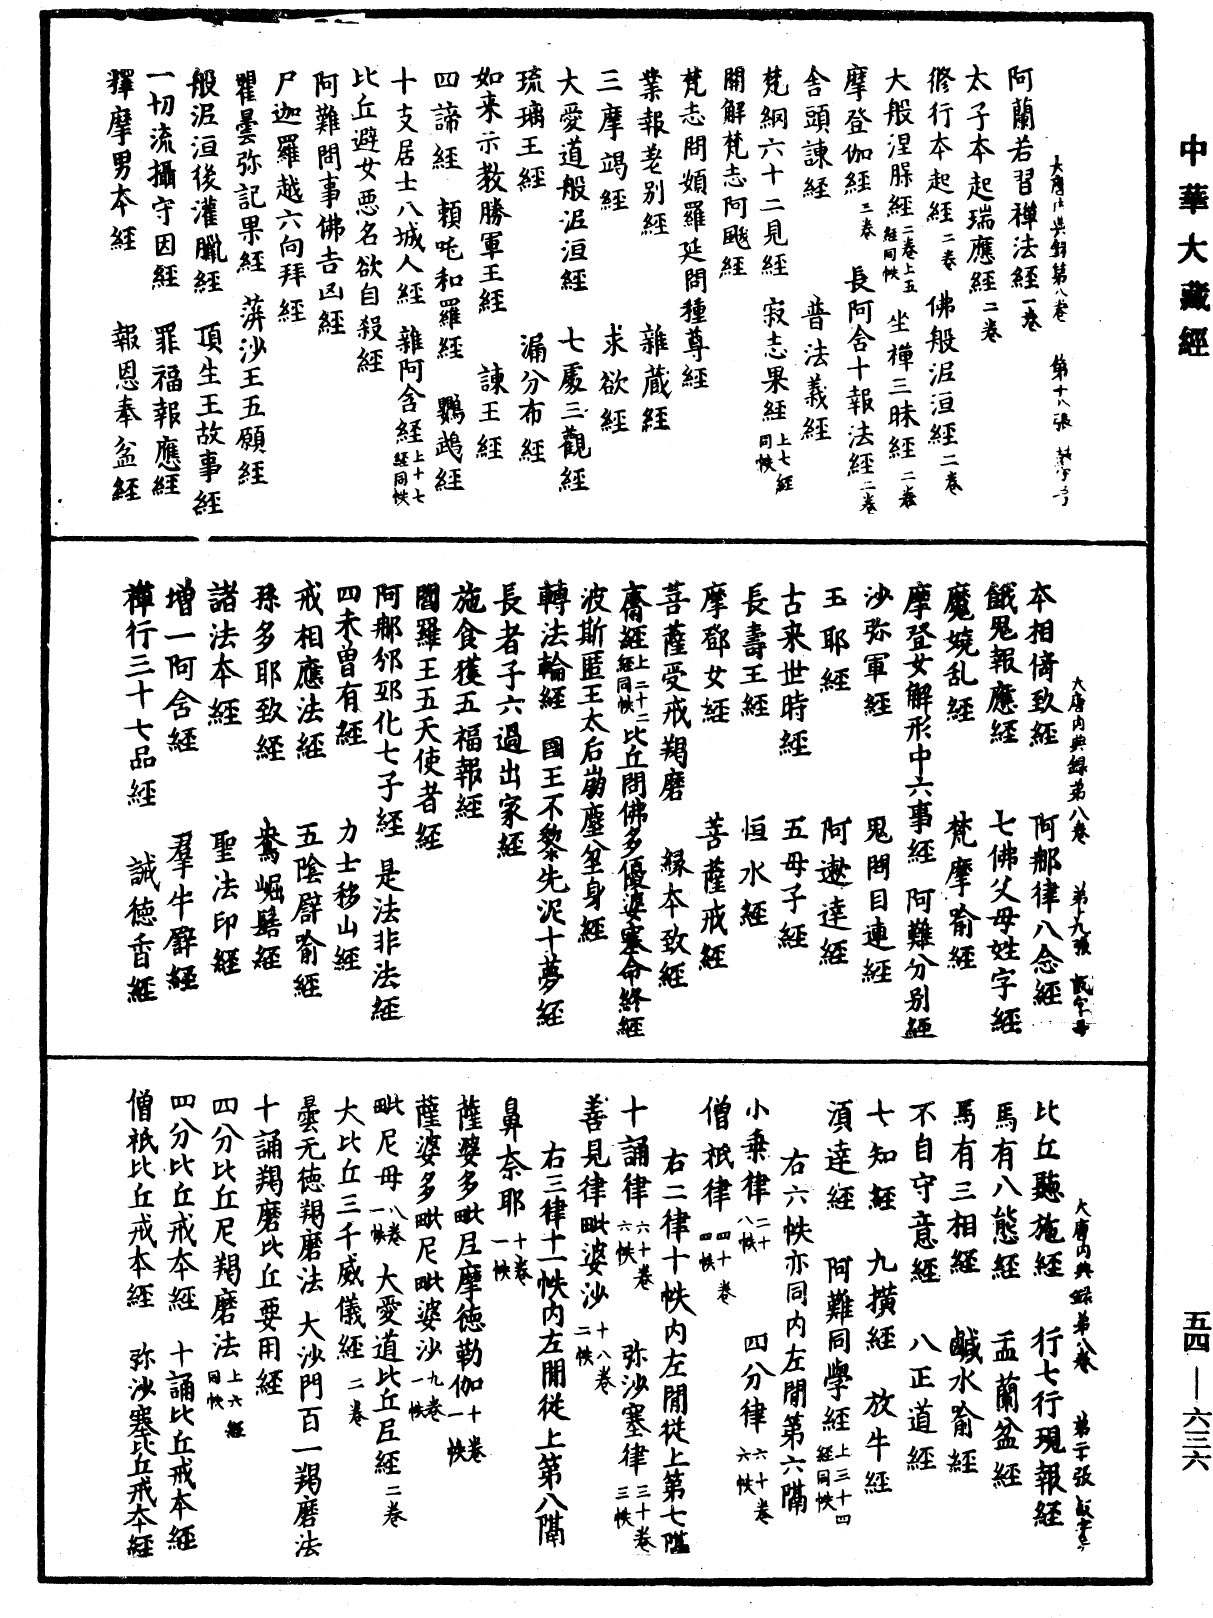 中華大藏經
大唐內典錄第八卷　第十八張
阿蘭若習禪法經一卷
太子本起瑞應經二卷
修行本起經二卷　佛般泥洹經二卷
大般涅槃經二卷上五經同帙　坐禪三昧經二卷
摩登伽經三卷　長阿含十報法經二卷
舍頭諫經　普法義經
梵網六十二見經　寂志果經上七經同帙
開解梵志阿颰經
梵志問頞羅延問種尊經
業報差别經　雜藏經
三摩竭經　求欲經
大愛道般泥洹經　七處三觀經
琉璃王經　漏分布經
如来示教勝軍王經　諫王經
四諦經　頼吒和羅經　鸚鵡經
十支居士八城人經　雜阿含經上十七經同帙
比丘避女惡名欲自殺經
阿難問事佛吉凶經
尸迦羅越六向拜經
瞿曇弥記果經　蓱沙王五願經
般泥洹後灌臘經　頂生王故事經
一切流攝守因經　罪福報應經
釋摩男本經　報恩奉盆經
大唐內典錄第八卷　第十九張
本相倚致經　阿那律八念經
餓鬼報應經　七佛父母姓字經
魔嬈乱經　梵摩喻經
摩登女解形中六事經　阿難分别經
沙弥軍經　鬼問目連經
玉耶經　阿遬達經
古来世時經　五母子經
長壽王經　恒水經
摩鄧女經　菩薩戒經
菩薩受戒羯磨　緣本致經
齋經上二十二經同帙　比丘問佛多優婆塞命終經
波斯匿王太后崩塵坌身經
轉法輪經　國王不黎先泥十夢經
長者子六過出家經
施食獲五福報經
閻羅王五天使者經
阿那邠邸化七子經　是法非法經
四未曾有經　力士移山經
戒相應法經　五陰譬喻經
孫多耶致經　鴦崛髻經
諸法本經　聖法印經
增一阿含經　羣牛譬經
禪行三十七品經　誡德香經
大唐內典錄第八卷　第二十張
比丘聽施經　行七行現報經
馬有八態經　盂蘭盆經
馬有三相經　鹹水喻經
不自守意經　八正道經
七知經　九横經　放牛經
須達經　阿難同學經上三十四經同帙
右六帙亦同内左間第六隔
小乘律二十八帙　四分律六十卷六帙
僧祇律四十卷四帙
右二律十帙内左間從上第七隔
十誦律六十卷六帙　弥沙塞律三十卷三帙
善見律毗婆沙十八卷二帙
右三律十一帙内左間從上第八隔
鼻奈耶十卷一帙
薩婆多毗尼摩德勒伽十卷一帙
薩婆多毗尼毗婆沙九卷一帙
毗尼母八卷一帙　大愛道比丘尼經二卷
大比丘三千威儀經二卷
曇无德羯磨法　大沙門百一羯磨法
十誦羯磨比丘要用經
四分比丘尼羯磨法上六經同帙
四分比丘戒本經　十誦比丘戒本經
僧祇比丘戒本經　弥沙塞比丘戒本經
五四—六三六